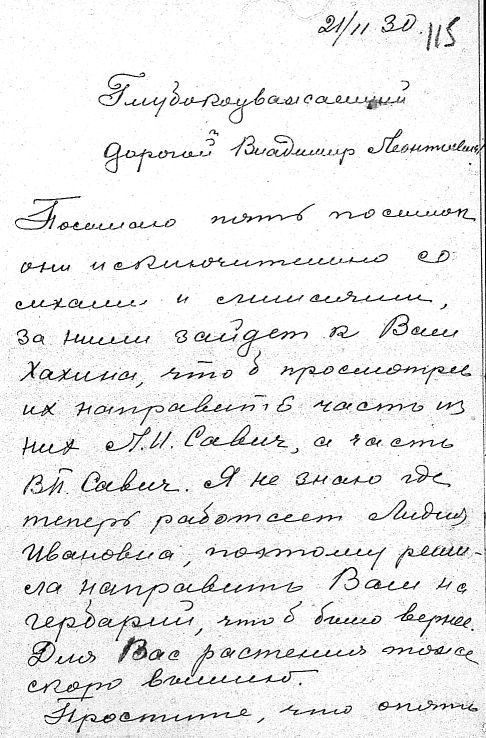 21/II 30. 115
Глубокоуважаемый
дорогой Владимир Леонтьевич!
Посылаю пять посылок
они исключительно со
мхами и лишаями,
за ними зайдет к Вам
Хахина, что б просмотрев
их направить часть из
них Л.И. Савич, а часть
В.П. Савич. Я не знаю где
теперь работает Лидия
Ивановна, поэтому реши-
ла направить Вам на
гербарий, что б было вернее.
Для Вас растения тоже
скоро вышлю.
Простите, что опять